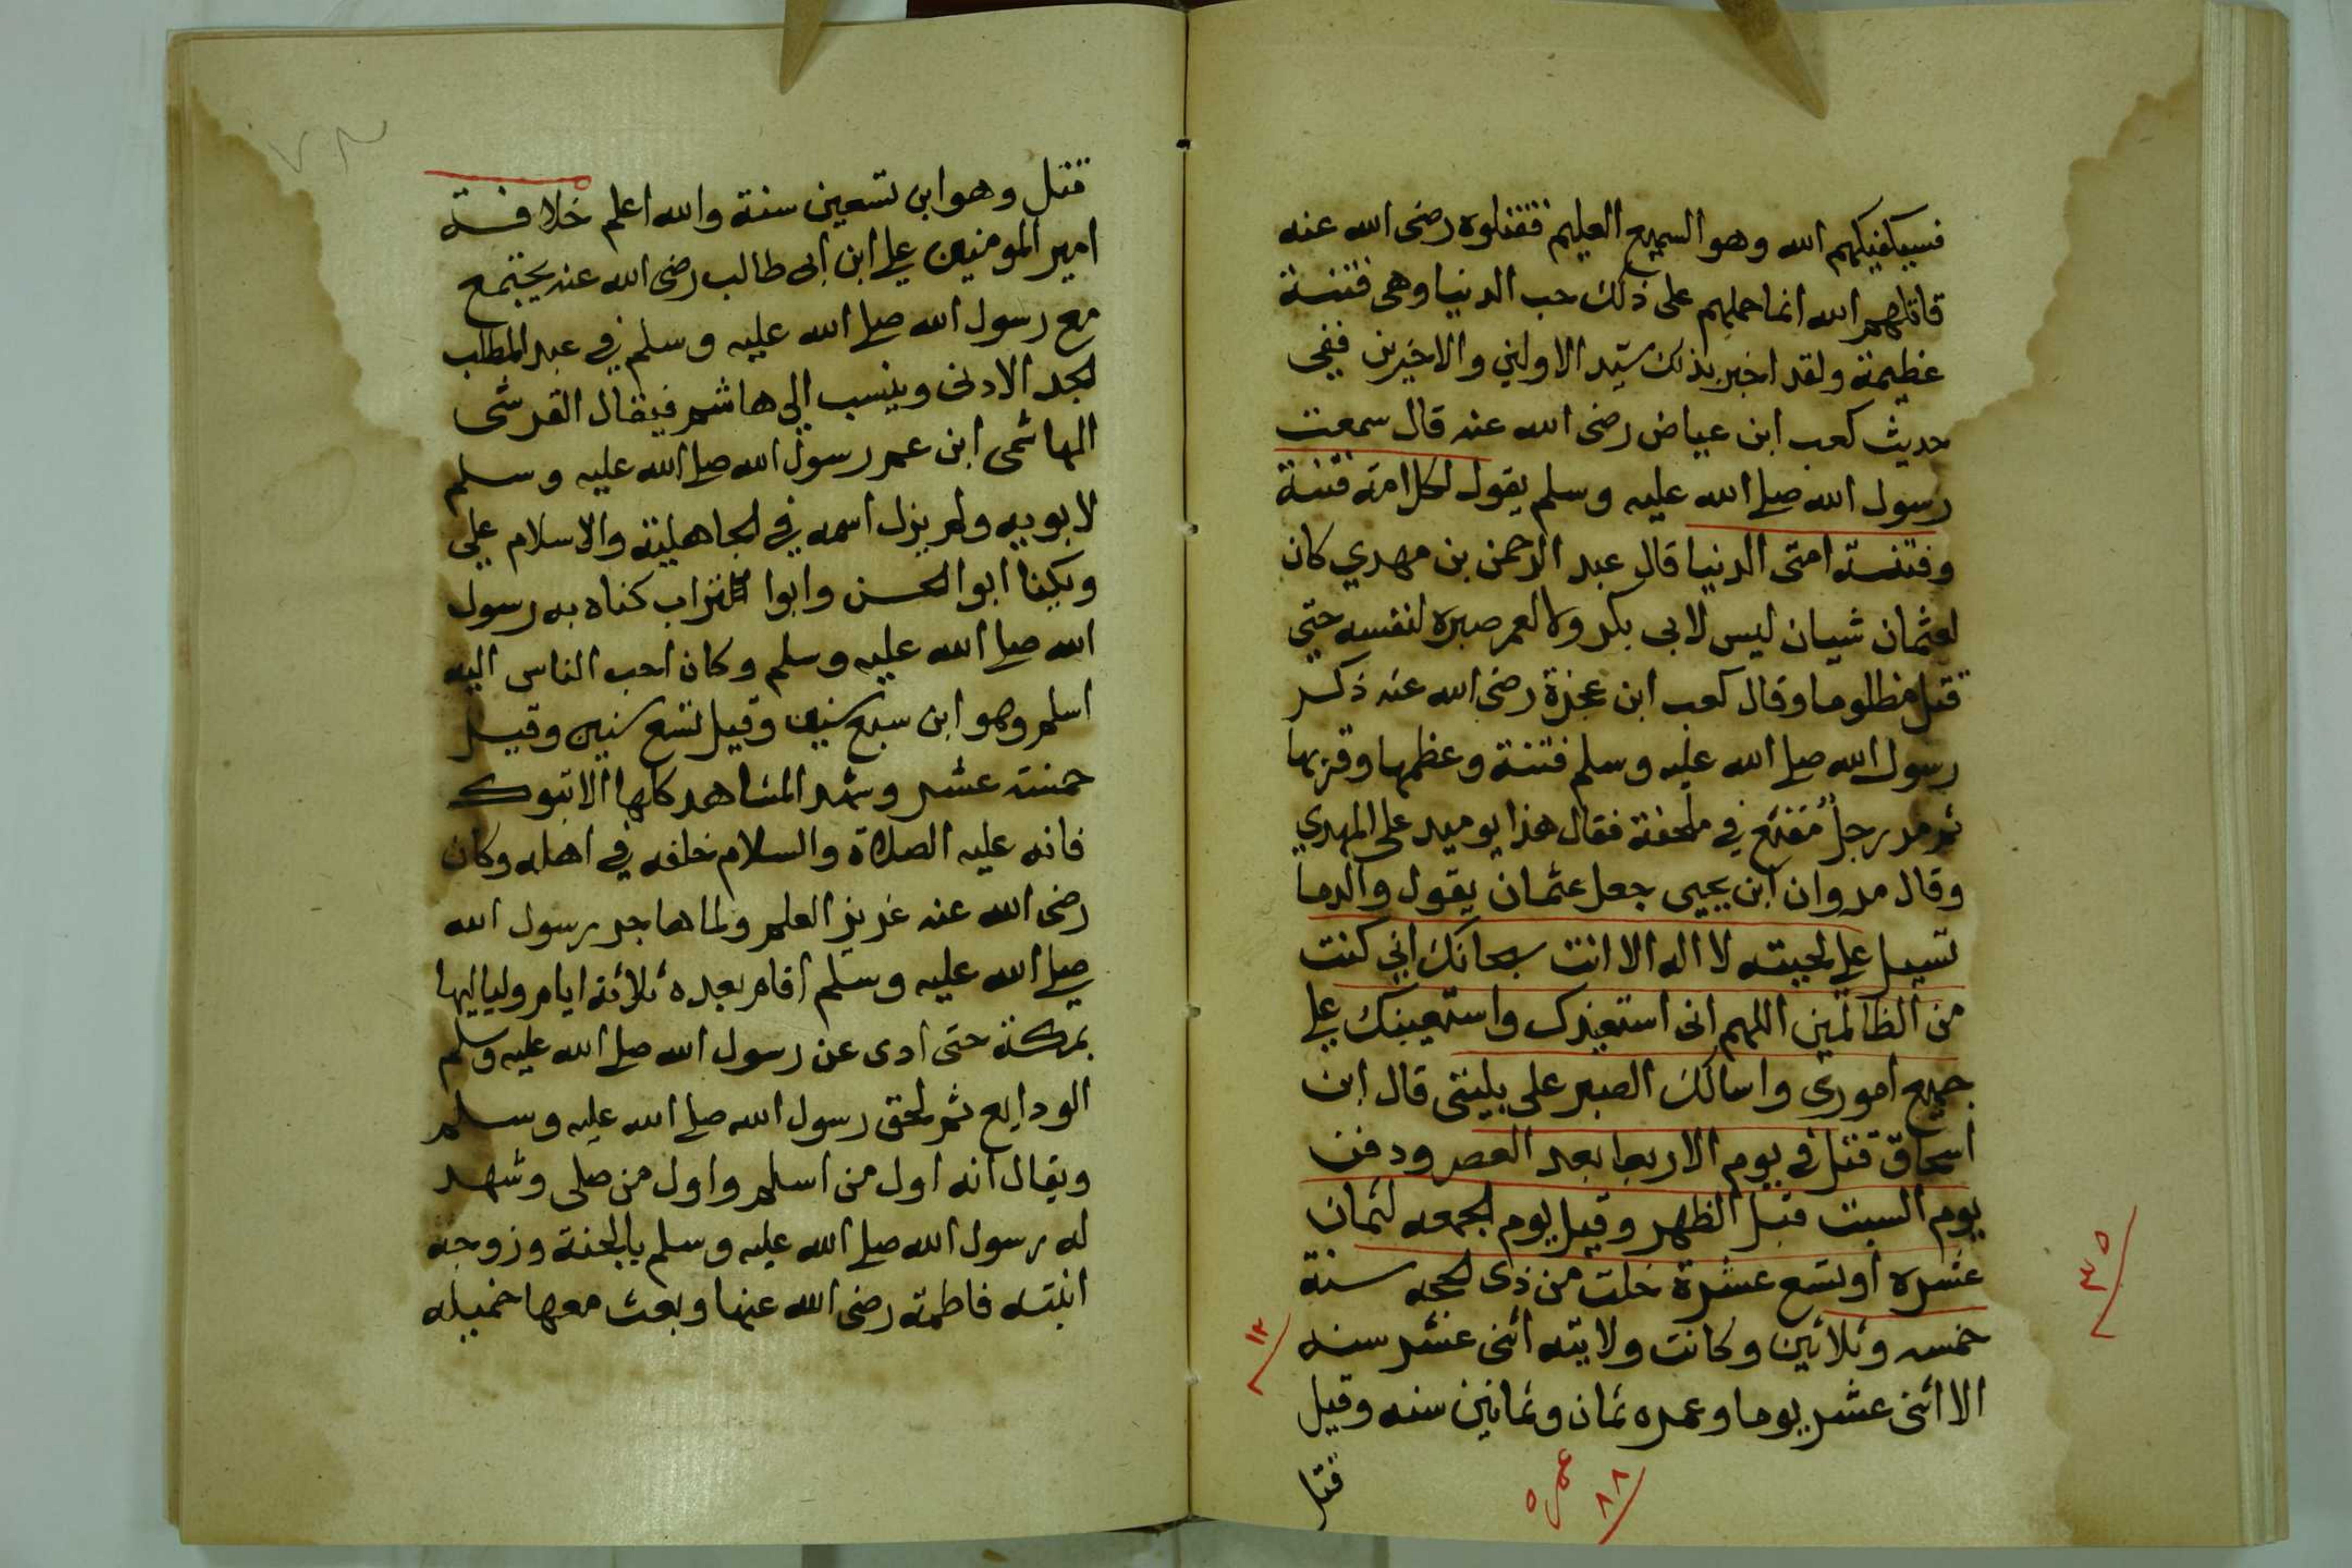 فسيكفيكهم الله وهو السميع العليم فقتلوه رضى الله عنه
قاتلهم الله انما حملهم على ذلك حب الدنيا وهى فتنة
عظيمة ولقد اخبر بذلك سيد الاولين والاخرين ففى
حديث كعب ابن عياض رضى الله عنه قال سمعت
رسول الله صلى الله عليه وسلم يقول لكل امة فتنة
وفتنة امتى الدنيا قال عبد الرحمن بن مهدي كان
لعثمان شيان ليس لابى بكر ولا لعمر صبره لنفسه حتى
قتل مظلوما وقال كعب ابن عجزة رضى الله عنه ذكر
رسول الله صلى الله عليه وسلم فتنة وعظمها وقربها
ثم مر رجل مقنع في ملحفة فقال هذا يوميد على المهدي
وقال مروان ابن يحيى جعل عثمان يقول والدما
تسيل على لحيته لا اله الا انت سبحانك اني كنت
من الظالمين اللهم انى استعيذك واستعينك على
جميع امورى واسالك الصبر على بليتى قال ابن
اسحاق قتل في يوم الاربعا بعد العصر ودفن
يوم السبت قبل الظهر وقيل يوم الجمعه لثمان
عشره او تسع عشرة خلت من ذى الحجه سنة
خمسه وثلاثين وكانت ولايته اثنى عشر سنه
الا اثنى عشر يوما وعمره ثمان وثمانين سنه وقيل
قتل
٣٥
١٢
عمره
٨٨
قتل وهو ابن تسعين سنة والله اعلم خلافة
امير المومنين علي ابن ابى طالب رضى الله عنه يجتمع
مع رسول الله صلى الله عليه وسلم في عبد المطلب
الجد الادنى وينسب الي هاشم فيقال القرشى
الهاشمى ابن عم رسول الله صلى الله عليه وسلم
لابويه ولم يزل اسمه في الجاهلية والاسلام علي
ويكنا ابوا الحسن وابوا تراب كناه به رسول
الله صلى الله عليه وسلم وكان احب الناس اليه
اسلم وهو ابن سبع سنين وقيل تسع سنين وقيل
خمسة عشر وشهد المشاهد كلها الا تبوك
فانه عليه الصلاة والسلام خلفه في اهله وكان
رضى الله عنه غزيز العلم ولما هاجر رسول الله
صلى الله عليه وسلم اقام بعده ثلاثة ايام ولياليها
بمكة حتى ادى عن رسول الله صلى الله عليه وسلم
الودايع ثم لحق رسول الله صلى الله عليه وسلم
ويقال انه اول من اسلم واول من صلى وشهد
له رسول الله صلى الله عليه وسلم بالجنة وزوجه
ابنته فاطمة رضى الله عنها وبعث معها خميله